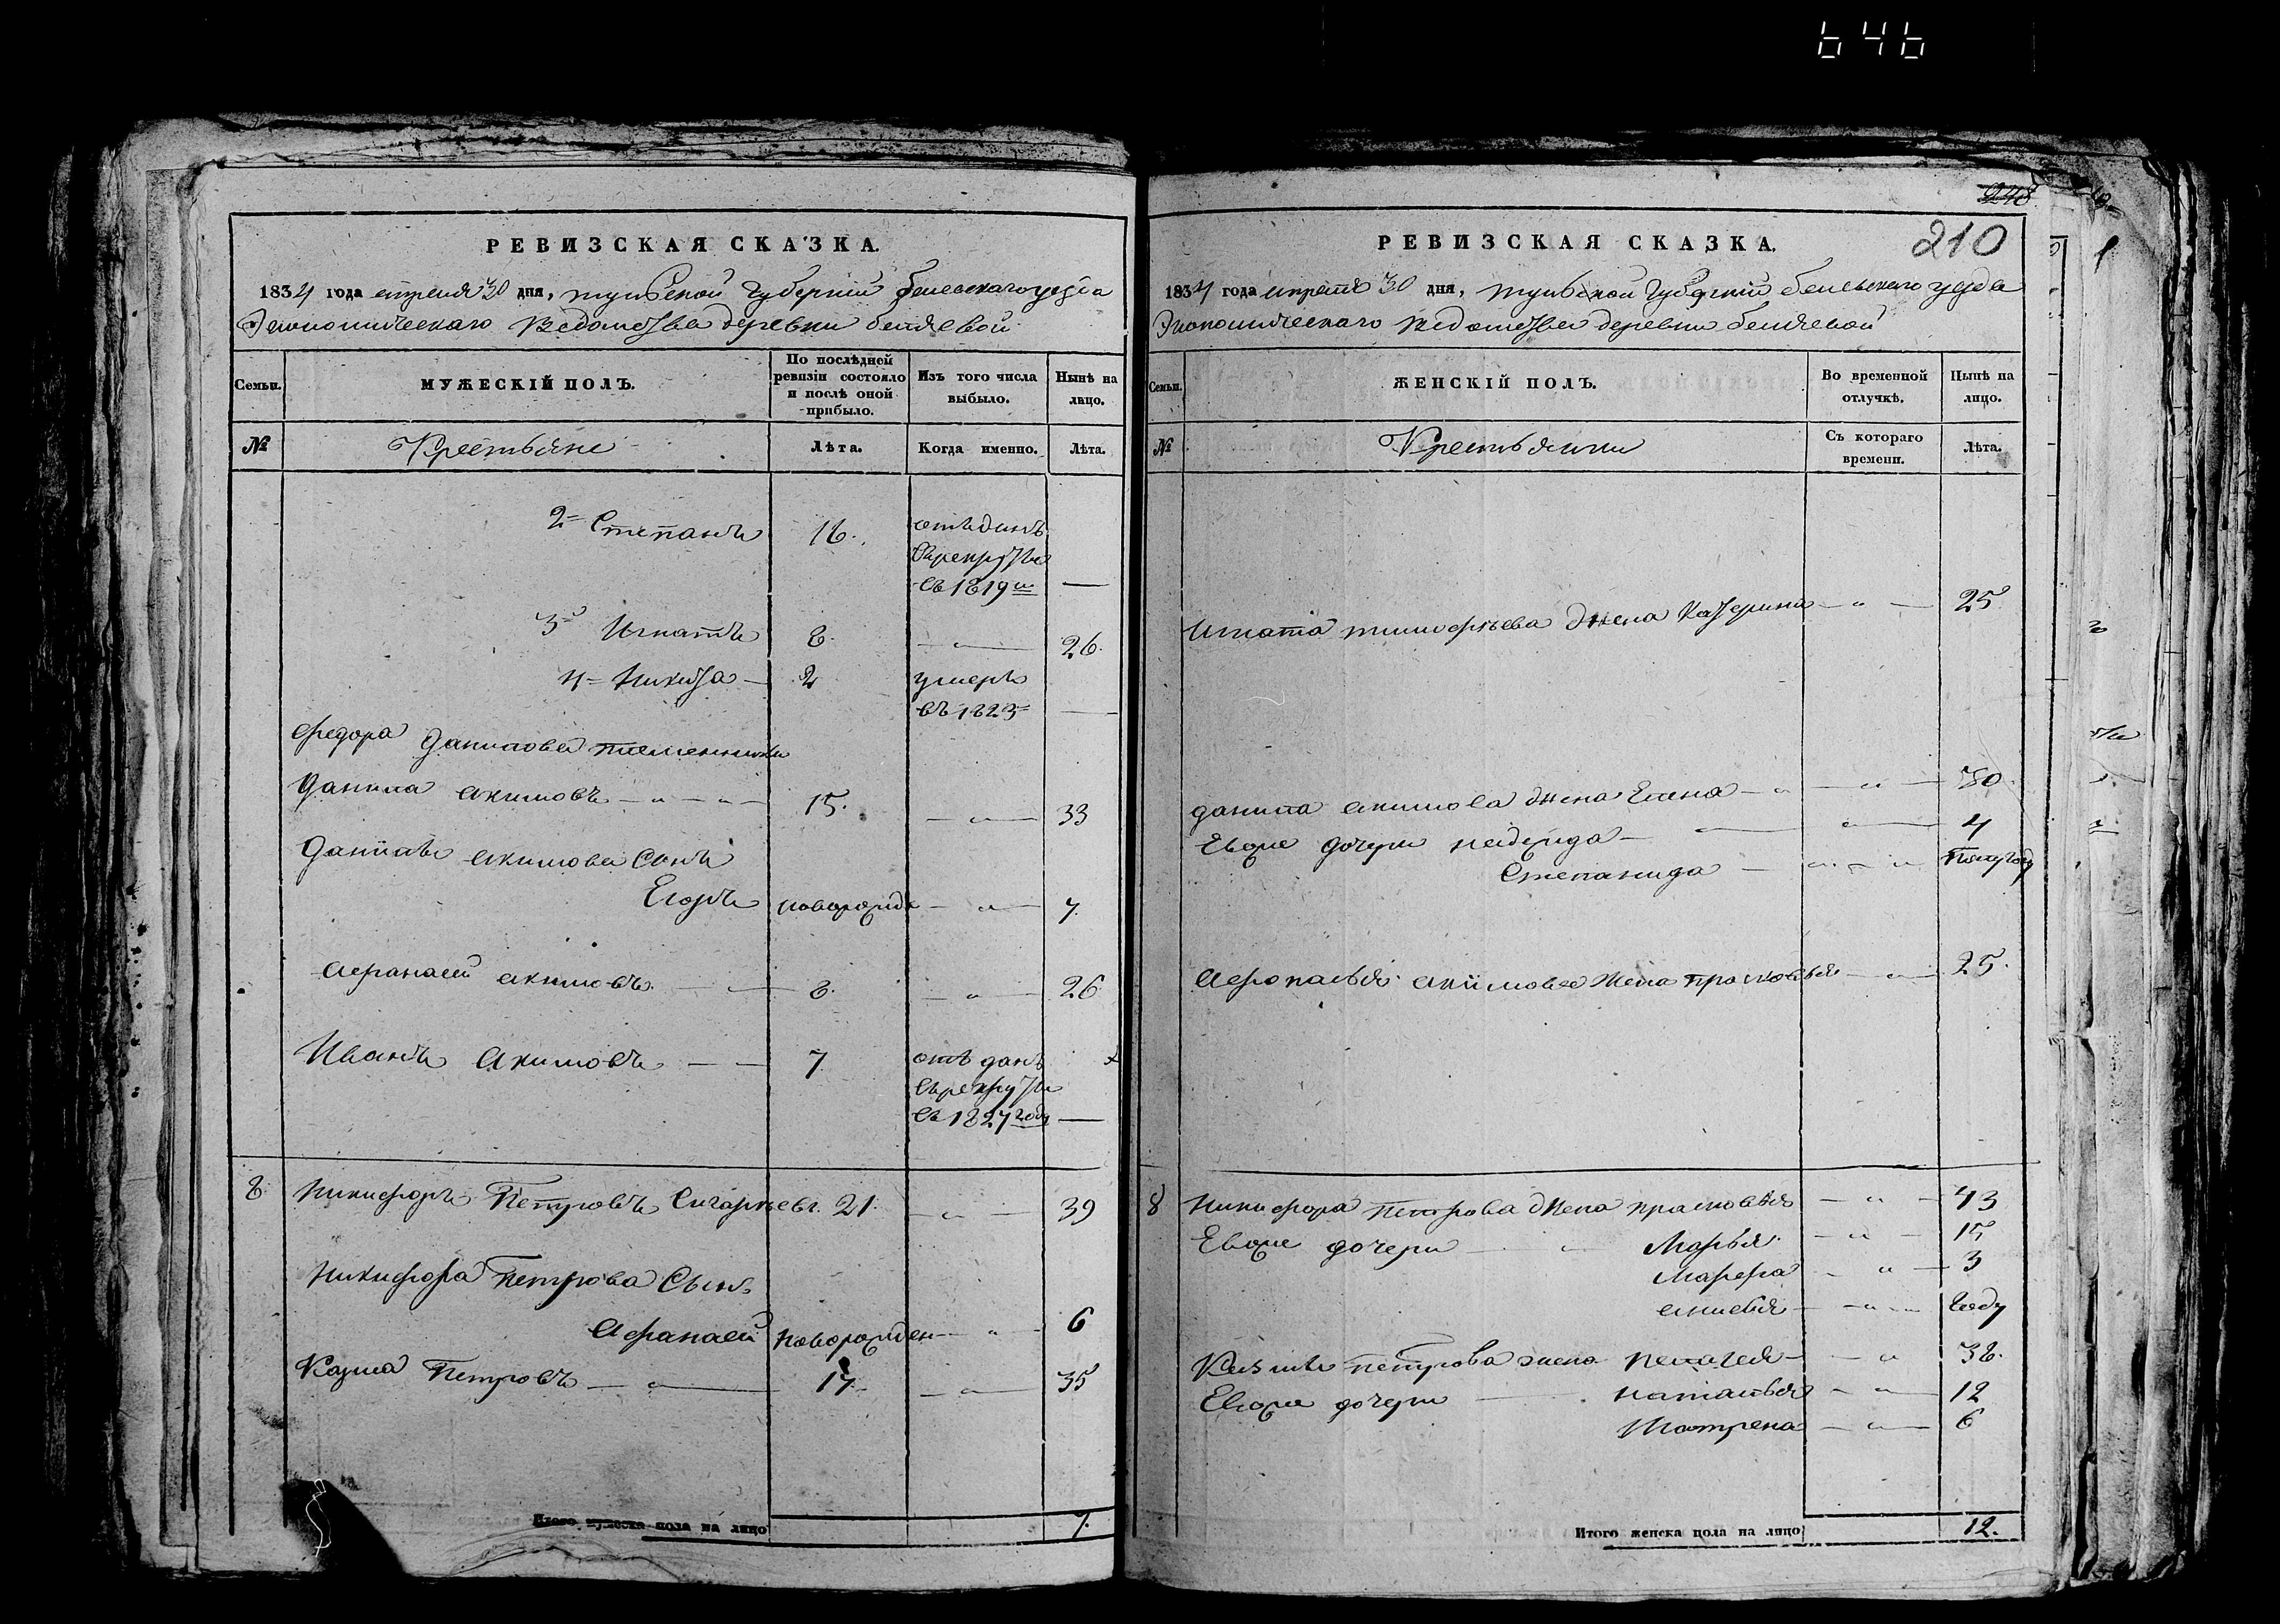 646
РЕВИЗСКАЯ СКАЗКА.
1834 года апреля 30 дня, тульской губернии белевскаго уезда
Экономическаго ведомства деревни беляевой
Семьи.
МУЖЕСКІЙ ПОЛЪ.
По послѣдней ревизіи состояло и послѣ оной прибыло.
Изъ того числа выбыло.
Нынѣ на лицо.
№
Крестьяне
Лѣта.
Когда именно.
Лѣта.
2= Степанъ 16. отъданъ
в рекруты
въ 1819м —
3= Игнатъ 8. — „ — 26.
4= Никита — 2 умеръ
въ 1823= —
Федора Данилова племенники
Данила акимовъ — „ — „ — 15. — „ — 33
Данилы акимова Сынъ
Егоръ новорожде — „ — 7.
афанасей акимовъ. — „ — 8. — „ — 26
Иванъ Акимовъ — — 7 отъ данъ
въ рекруты
въ 1827 году —
8 Никифоръ Петровъ 21. — „ — 39
Никифора Петрова Сынъ
Афанасей новорожден — „ — 6
Козма Петровъ — „ — 17. — „ — 35
Итого мужеска пола на лицо 7.
248
210
РЕВИЗСКАЯ СКАЗКА.
1834 года апреля 30 дня, тульской губернии белевскаго уезда
Экономическаго ведомства деревни беляевой
Семьи.
ЖЕНСКІЙ ПОЛЪ.
Во временной отлучкѣ.
Нынѣ на лицо.
№
Крестьянки
Съ котораго времени.
Лѣта.
Игната тимофѣева жена Катерина — „ — 25
данила акимова жена Елена — „ — „ — 30.
Евоже дочери надежда — „ — 4
Степанида — „ — „ полугоду
Афонасья акимова жена прасковья — „ — 25.
8 Никифора петрова жена прасковья — „ — 43
Евоже дочери — „ Марья. — „ — 15
Марфа — „ — 3
анисья — „ — году
Казмы петрова жена пелагея — „ 38.
Евоже дочери — наталья — „ — 12
Матрена — „ — 6
Итого женска пола на лицо 12.